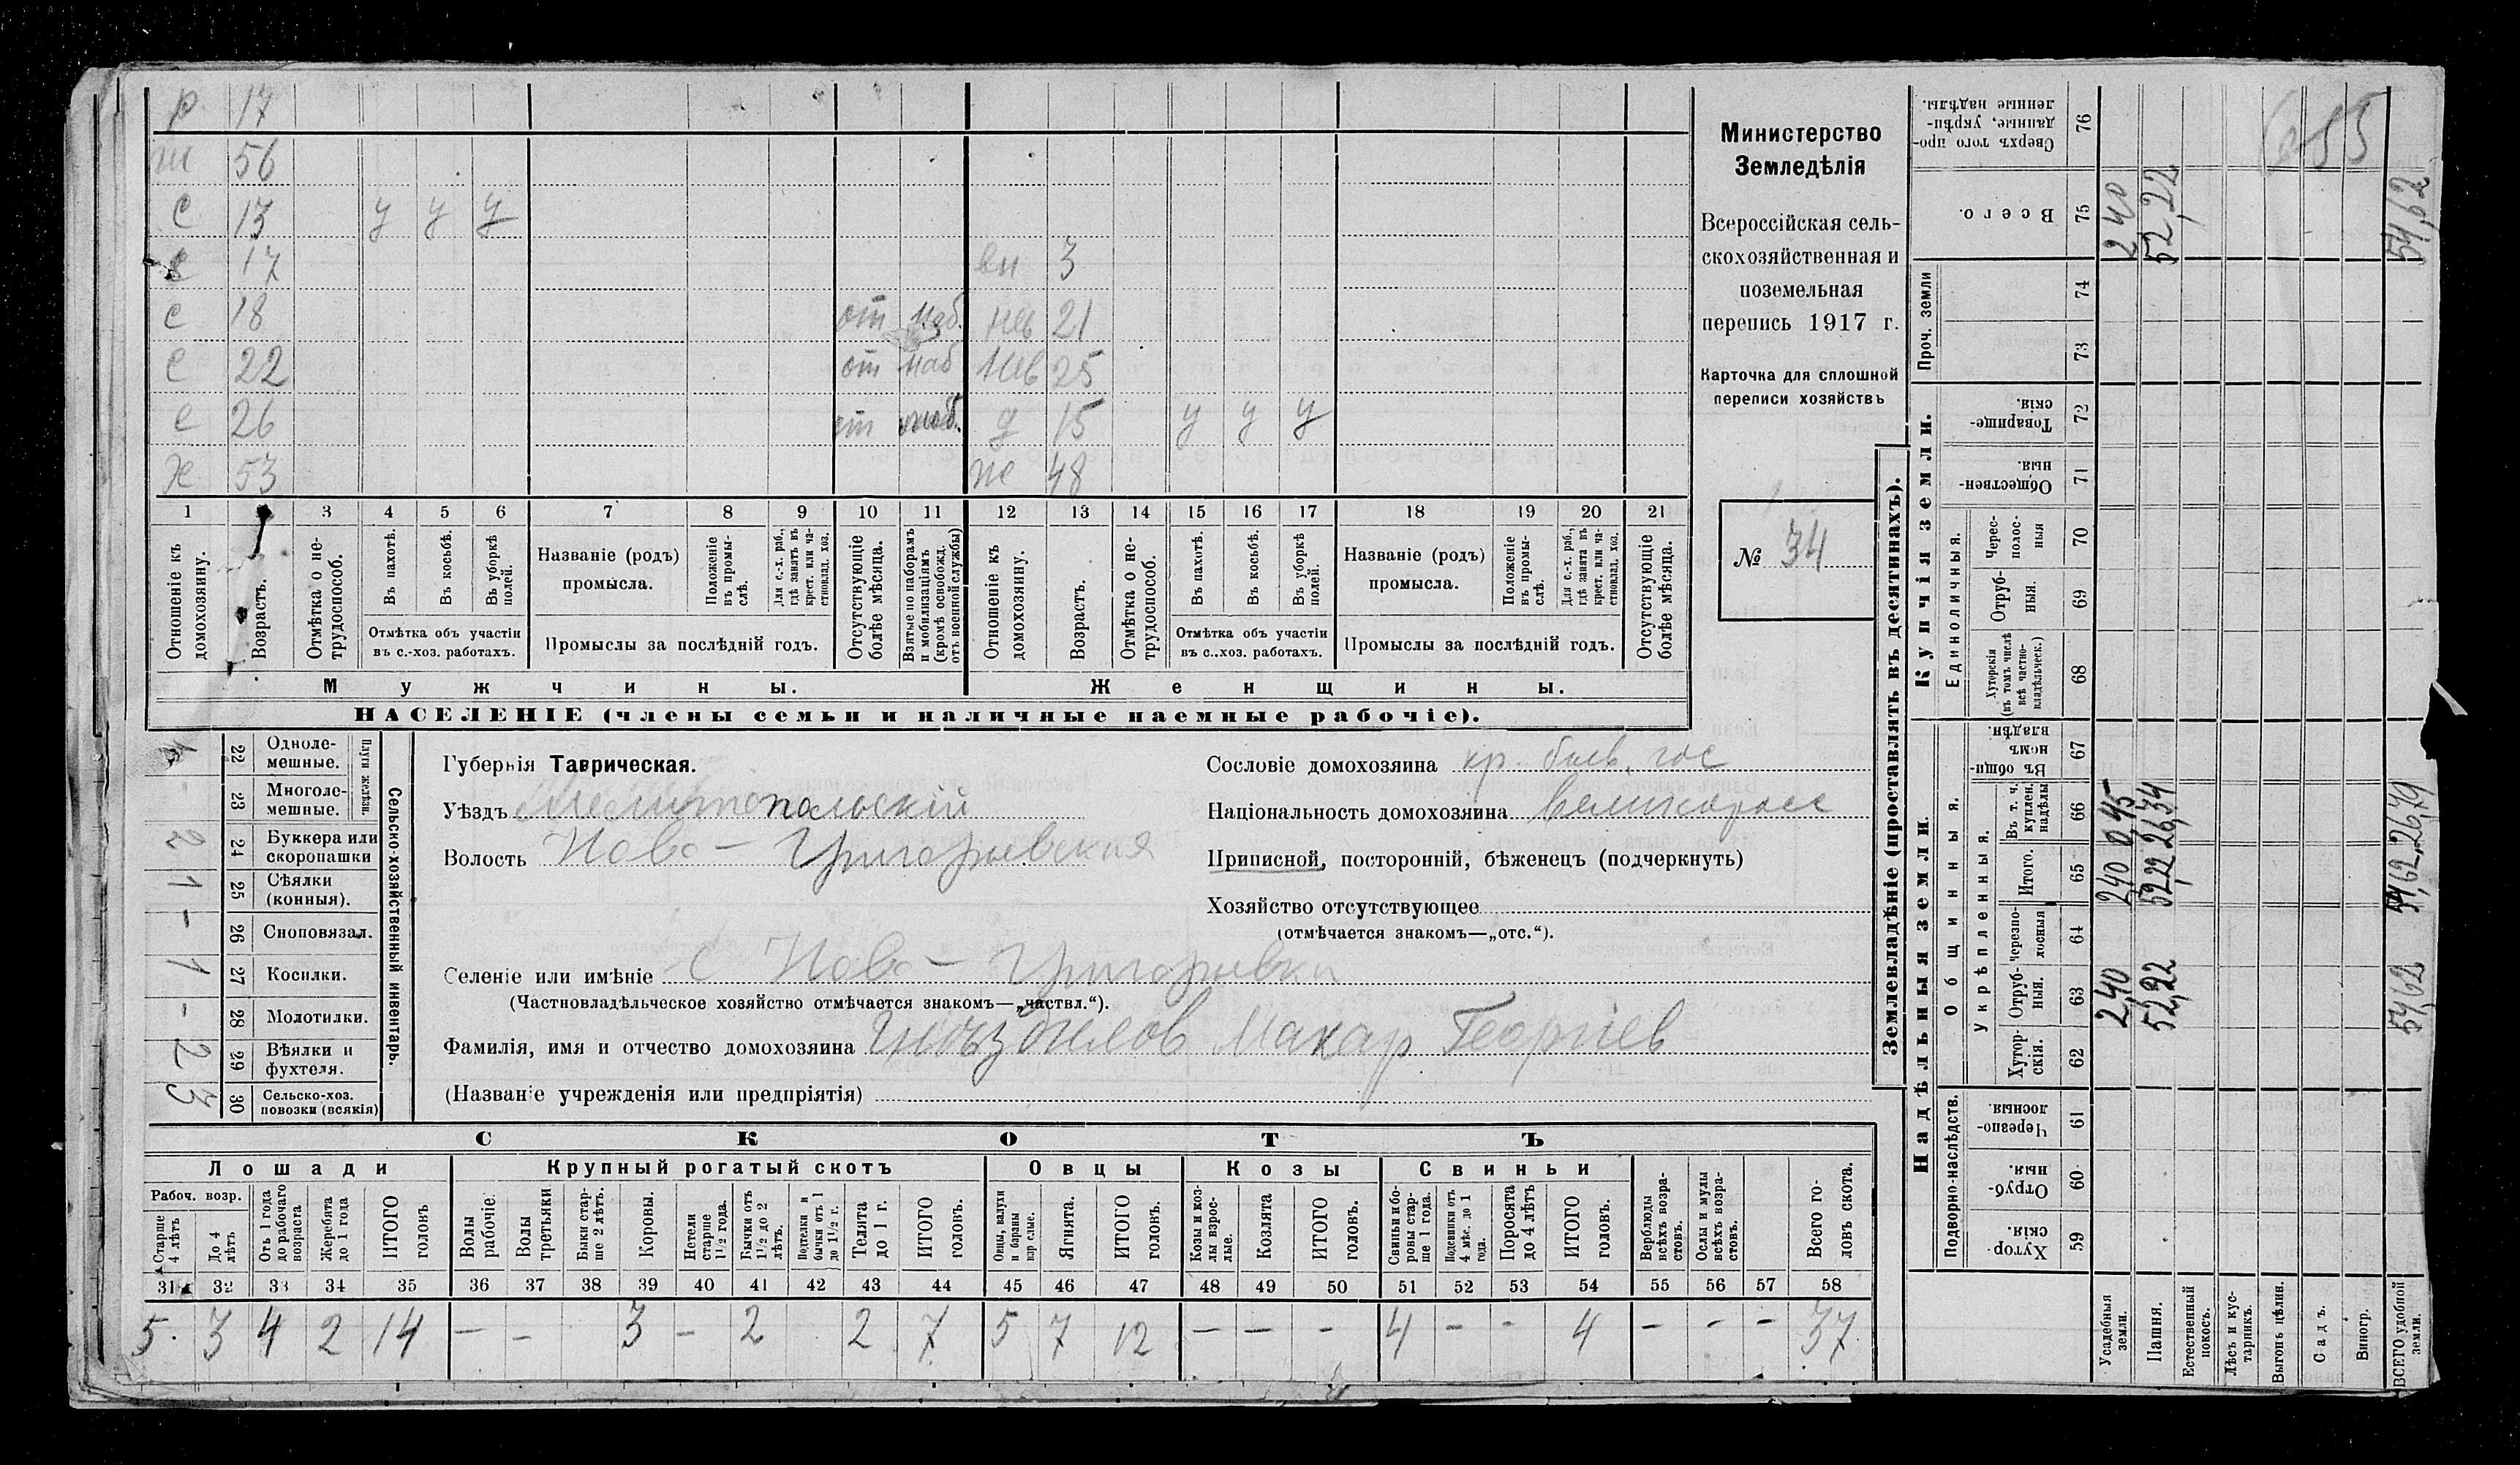 р 17
ж 56
с 13 у у у
с 17 вн 3
с 18 от наб. нев 21
с 22 от наб нев 25
с 26 от наб. д 15 у у у
Х 53 ж 48
1 2 3 4 5 6 7 8 9 10 11 12 13 14 15 16 17 18 19 20 21
Отношеніе къ домохозяину.
Возрастъ.
Отмѣтка о не-трудоспособ.
Въ пахотѣ.
Въ косьбѣ.
Въ уборкѣ полей.
Отмѣтка объ участіи
въ с.-хоз. работахъ.
Названіе (родъ)
промысла.
Положеніе въ промы-слѣ.
Для с.-х. раб., гдѣ занятъ въ крест. или ча-стновлад. хоз.
Промыслы за послѣдній годъ.
Отсутствующіе болѣе мѣсяца.
Взятые по наборамъ и мобилизаціямъ (кромѣ освобожд. отъ военной службы)
Отношеніе къ домохозяину.
Возрастъ.
Отмѣтка о не-трудоспособ.
Въ пахотѣ.
Въ косьбѣ.
Въ уборкѣ полей.
Отмѣтка объ участіи
въ с..хоз. работахъ.
Названіе (родъ)
промысла.
Положеніе въ промы-слѣ.
Для с.-х. раб., гдѣ занята въ крест. или ча-стновлад. хоз.
Промыслы за послѣдній годъ.
Отсутствующіе болѣе мѣсяца.
Мужчины.
Женщины.
НАСЕЛЕНІЕ (члены семьи и наличные наемные рабочіе).
Министерство
Земледѣлія
Всероссійская сель-
скохозяйственная и
поземельная
перепись 1917 г.
Карточка для сплошной
переписи хозяйствъ
№ 34
Сельско-хозяйственный инвентарь.
Плуги желѣзн.
22 Одноле-мешные.
23 Многоле-мешные.
24 Буккера или скоропашки 2
25 Сѣялки (конныя). 1
26 Сноповязал. -
27 Косилки. 1
28 Молотилки. -
29 Вѣялки и фухтеля. 2
30 Сельско-хоз. повозки (всякія) 3
Губернія Таврическая.
Уѣздъ Мелитопольскій
Волость Ново-Григорьевская
Селеніе или имѣніе С Ново-Григорьевка
(Частновладѣльческое хозяйство отмѣчается знакомъ—„частвл.“).
Фамилія, имя и отчество домохозяина Гнѣздилов Макар Георгіев
(Названіе учрежденія или предпріятія)
Сословіе домохозяина кр. быв. гос
Національность домохозяина великоросс
Приписной, посторонній, бѣженецъ (подчеркнуть)
Хозяйство отсутствующее
(отмѣчается знакомъ—„отс.“).
СКОТЪ
Лошади
Крупный рогатый скотъ
Овцы
Козы
Свиньи
Рабоч. возр.
Старше 4 лѣтъ
До 4 лѣтъ
Отъ 1 года до рабочаго возраста
Жеребята до 1 года
ИТОГО головъ
Волы рабочіе
Волы третьяки
Быки стар-ше 2 лѣтъ.
Коровы.
Нетели старше 1 1/2 года.
Бычки отъ 1 1/2 до 2 лѣтъ.
Подтелки и бычки отъ 1 до 1 1/2 г.
Телята до 1 г.
ИТОГО головъ.
Овцы, валухи и бараны взрослые.
Ягнята.
ИТОГО головъ.
Козы и коз-лы взрос-лые.
Козлята
ИТОГО головъ.
Свиньи и бо-ровы стар-ше 1 года.
Подсвинки отъ 4 мѣс. до 1 года.
Поросята до 4 лѣтъ
ИТОГО головъ.
Верблюды всѣхъ возра-стовъ.
Ослы и мулы всѣхъ возра-стовъ.
Всего го-ловъ скота.
31 32 33 34 35 36 37 38 39 40 41 42 43 44 45 46 47 48 49 50 51 52 53 54 55 56 57 58
5 3 4 2 14 - - 3 - 2 2 7 5 7 12 - - - 4 - - 4 - - - 37
Землевладѣніе (проставлять въ десятинахъ).
Купчія земли.
Надѣльныя земли.
Сверхъ того про-данные, укрѣп-ленные надѣлы. 76
Всего. 75
Проч. земли
74
73
Товарище-скія. 72
Обществен-ныя. 71
Единоличныя.
Черес-полос-ныя 70
Отруб-ныя. 69
Хуторскія (въ томъ числѣ всѣ частно-владѣльческ.) 68
Общинныя.
Въ общин-номъ владѣн. 67
Укрѣпленныя.
Въ т. ч. куплен. надѣлы 66
Итого. 65
черезпо-лосныя 64
Отруб-ныя. 63
Хутор-скія. 62
Подворно-наслѣдств.
Черезпо-лосныя. 61
Отруб-ныя. 60
Хутор-скія. 59
Усадебныя земли. 2,40 2,40 0,45 2 40
Пашня. 52,22 52,22 26,34 52,22
Естественный покосъ.
Лѣсъ и кус-тарникъ.
Выгонъ цѣлин.
Садъ.
Виногр.
ВСЕГО удобной земли. 54,62 54,62 26,79 54,62